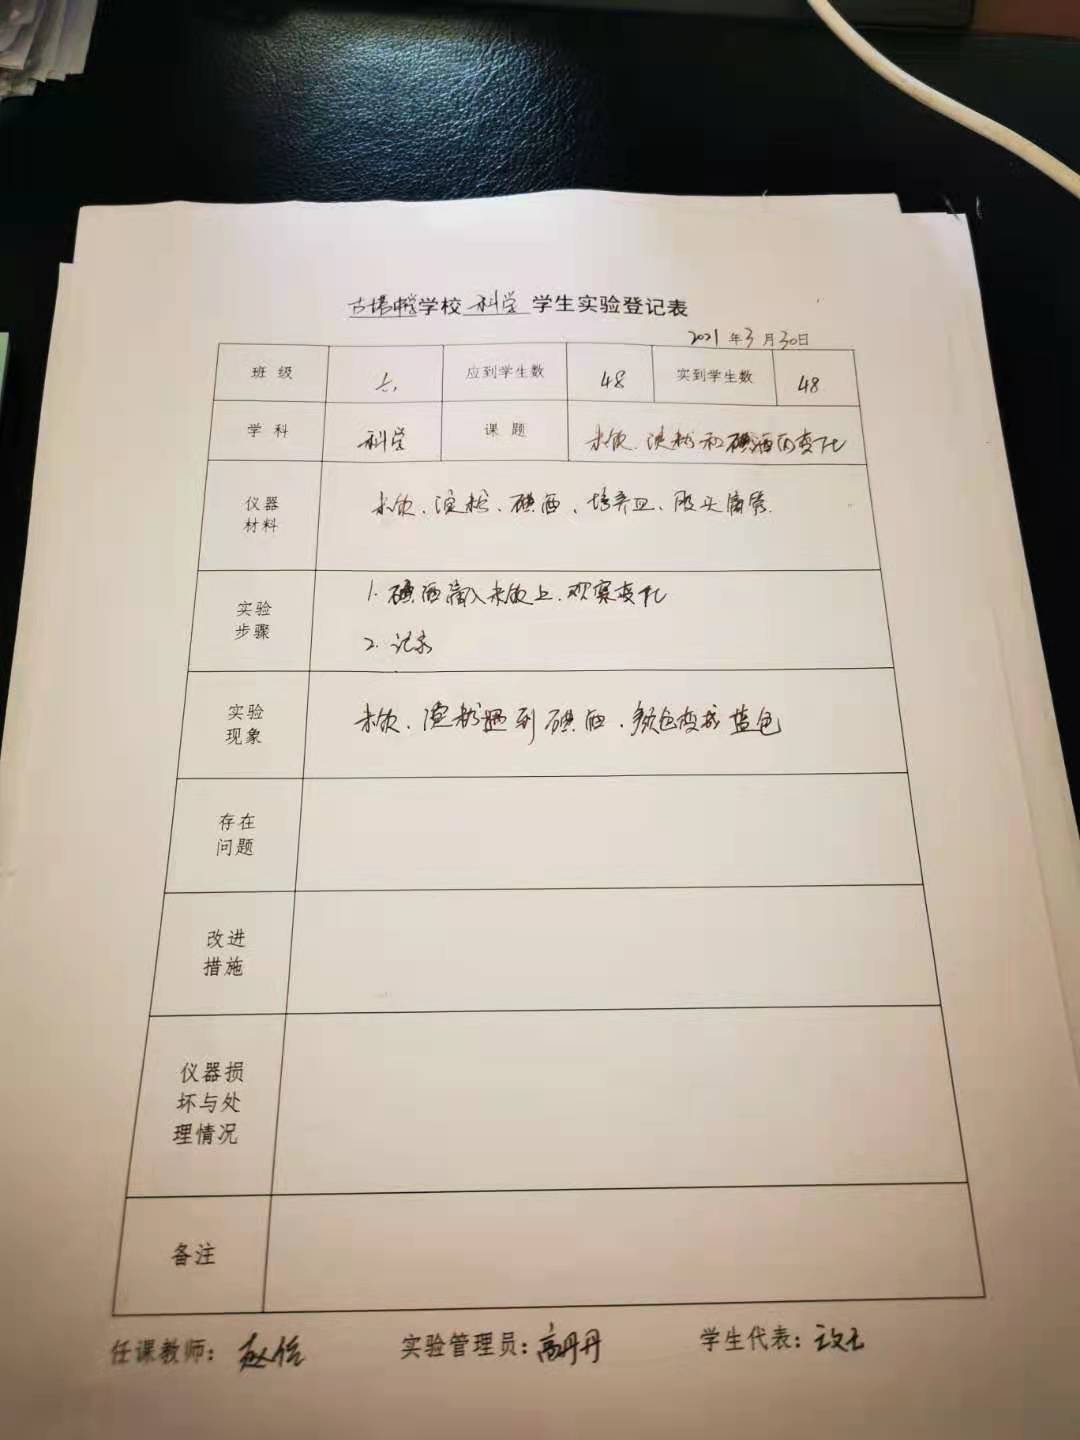 古塔中学学校 科学 学生实验登记表
2021年3月30日
班级 七 应到学生数 48 实到学生数 48
学科 科学 课题 米饭、淀粉和碘酒的变化
仪器材料 米饭、淀粉、碘酒、培养皿、胶头滴管.
实验步骤 1.碘酒滴入米饭上.观察变化
2.记录
实验现象 米饭、淀粉遇到碘酒、颜色变成蓝色
存在问题
改进措施
仪器损坏与处理情况
备注
任课教师： 实验管理员：高丹丹 学生代表：